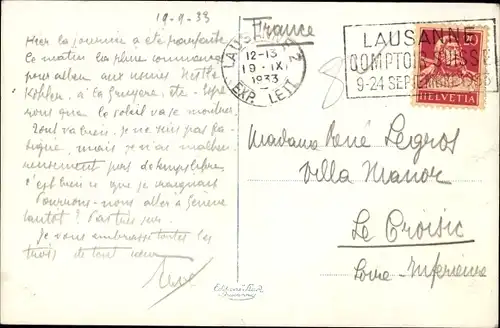 19-9-33
Hier la journée a été parfaite
Ce matin la pluie commence
pour aller aux usines Nestlé
Kohler, à la Gruyère, etc. Espé
rons que le soleil va se montrer.
Tout va bien. Je ne suis pas fa
tiguée, mais je n'ai malheu
reusement pas de temps libre
C'est bien ce que je craignais
Pourrons-nous aller à Genève
tantôt ? Pas très sûr.
Je vous embrasse toutes les
trois de tout cœur
France
LAUSANNE
12-13
19.IX.
1933
EXP. LETT.
LAUSANNE
COMPTOIR SUISSE
9-24 SEPTEMBRE 1933
HELVETIA
Madame René Legros
Villa Manoir
Le Croisic
Loire-Inférieure